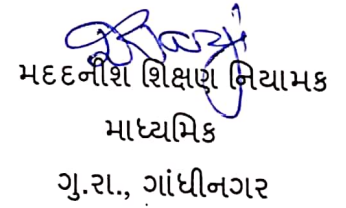 મદદનીશ શિક્ષણ નિયામક
માધ્યમિક
ગુ.રા., ગાંધીનગર